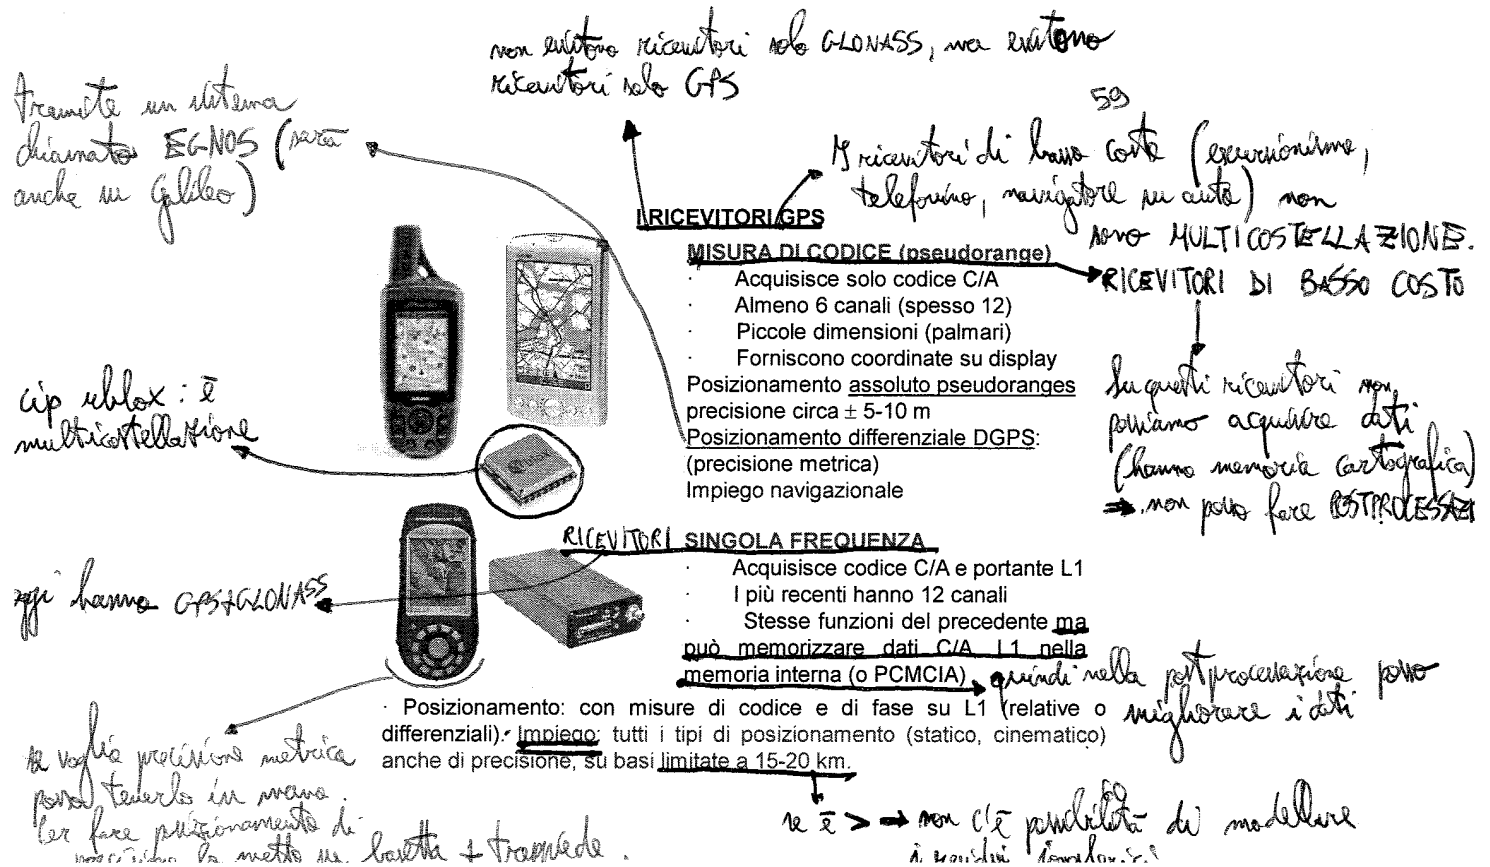 non esistono ricevitori solo GLONASS, ma esistono
ricevitori solo GPS
59
tramite un sistema
chiamato EGNOS (sarà
anche su Galileo)
I ricevitori di basso costo (escursionismo,
telefonino, navigatore su auto) non
sono MULTICOSTELLAZIONE.
I RICEVITORI GPS
MISURA DI CODICE (pseudorange)
RICEVITORI DI BASSO COSTO
· Acquisisce solo codice C/A
· Almeno 6 canali (spesso 12)
· Piccole dimensioni (palmari)
· Forniscono coordinate su display
Posizionamento assoluto pseudoranges
precisione circa ± 5-10 m
Posizionamento differenziale DGPS:
(precisione metrica)
Impiego navigazionale
Su questi ricevitori non
possiamo acquisire dati
(hanno memoria cartografica)
⇒ non posso fare POSTPROCESSAZI
cip ublox: è
multicostellazione
RICEVITORI SINGOLA FREQUENZA
· Acquisisce codice C/A e portante L1
· I più recenti hanno 12 canali
· Stesse funzioni del precedente ma
può memorizzare dati C/A L1 nella
memoria interna (o PCMCIA)
oggi hanno GPS+GLONASS
quindi nella postprocessazione posso
migliorare i dati
· Posizionamento: con misure di codice e di fase su L1 (relative o
differenziali). Impiego: tutti i tipi di posizionamento (statico, cinematico)
anche di precisione, su basi limitate a 15-20 km.
se voglio precisione metrica
posso tenerlo in mano.
Per fare posizionamento di
precisione lo metto su basetta + treppiede.
60
se è > ⇒ non c'è possibilità di modellare
i residui